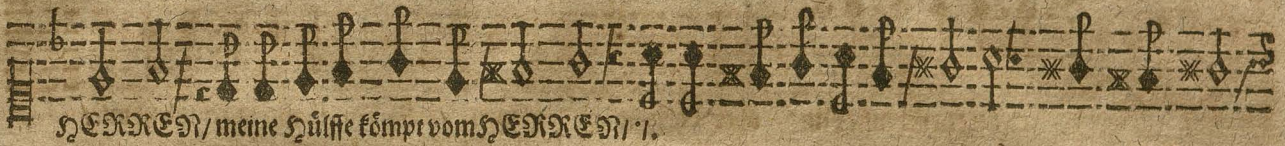 HERREN/ meine Hülffe kömpt vom HERREN/ ·/.